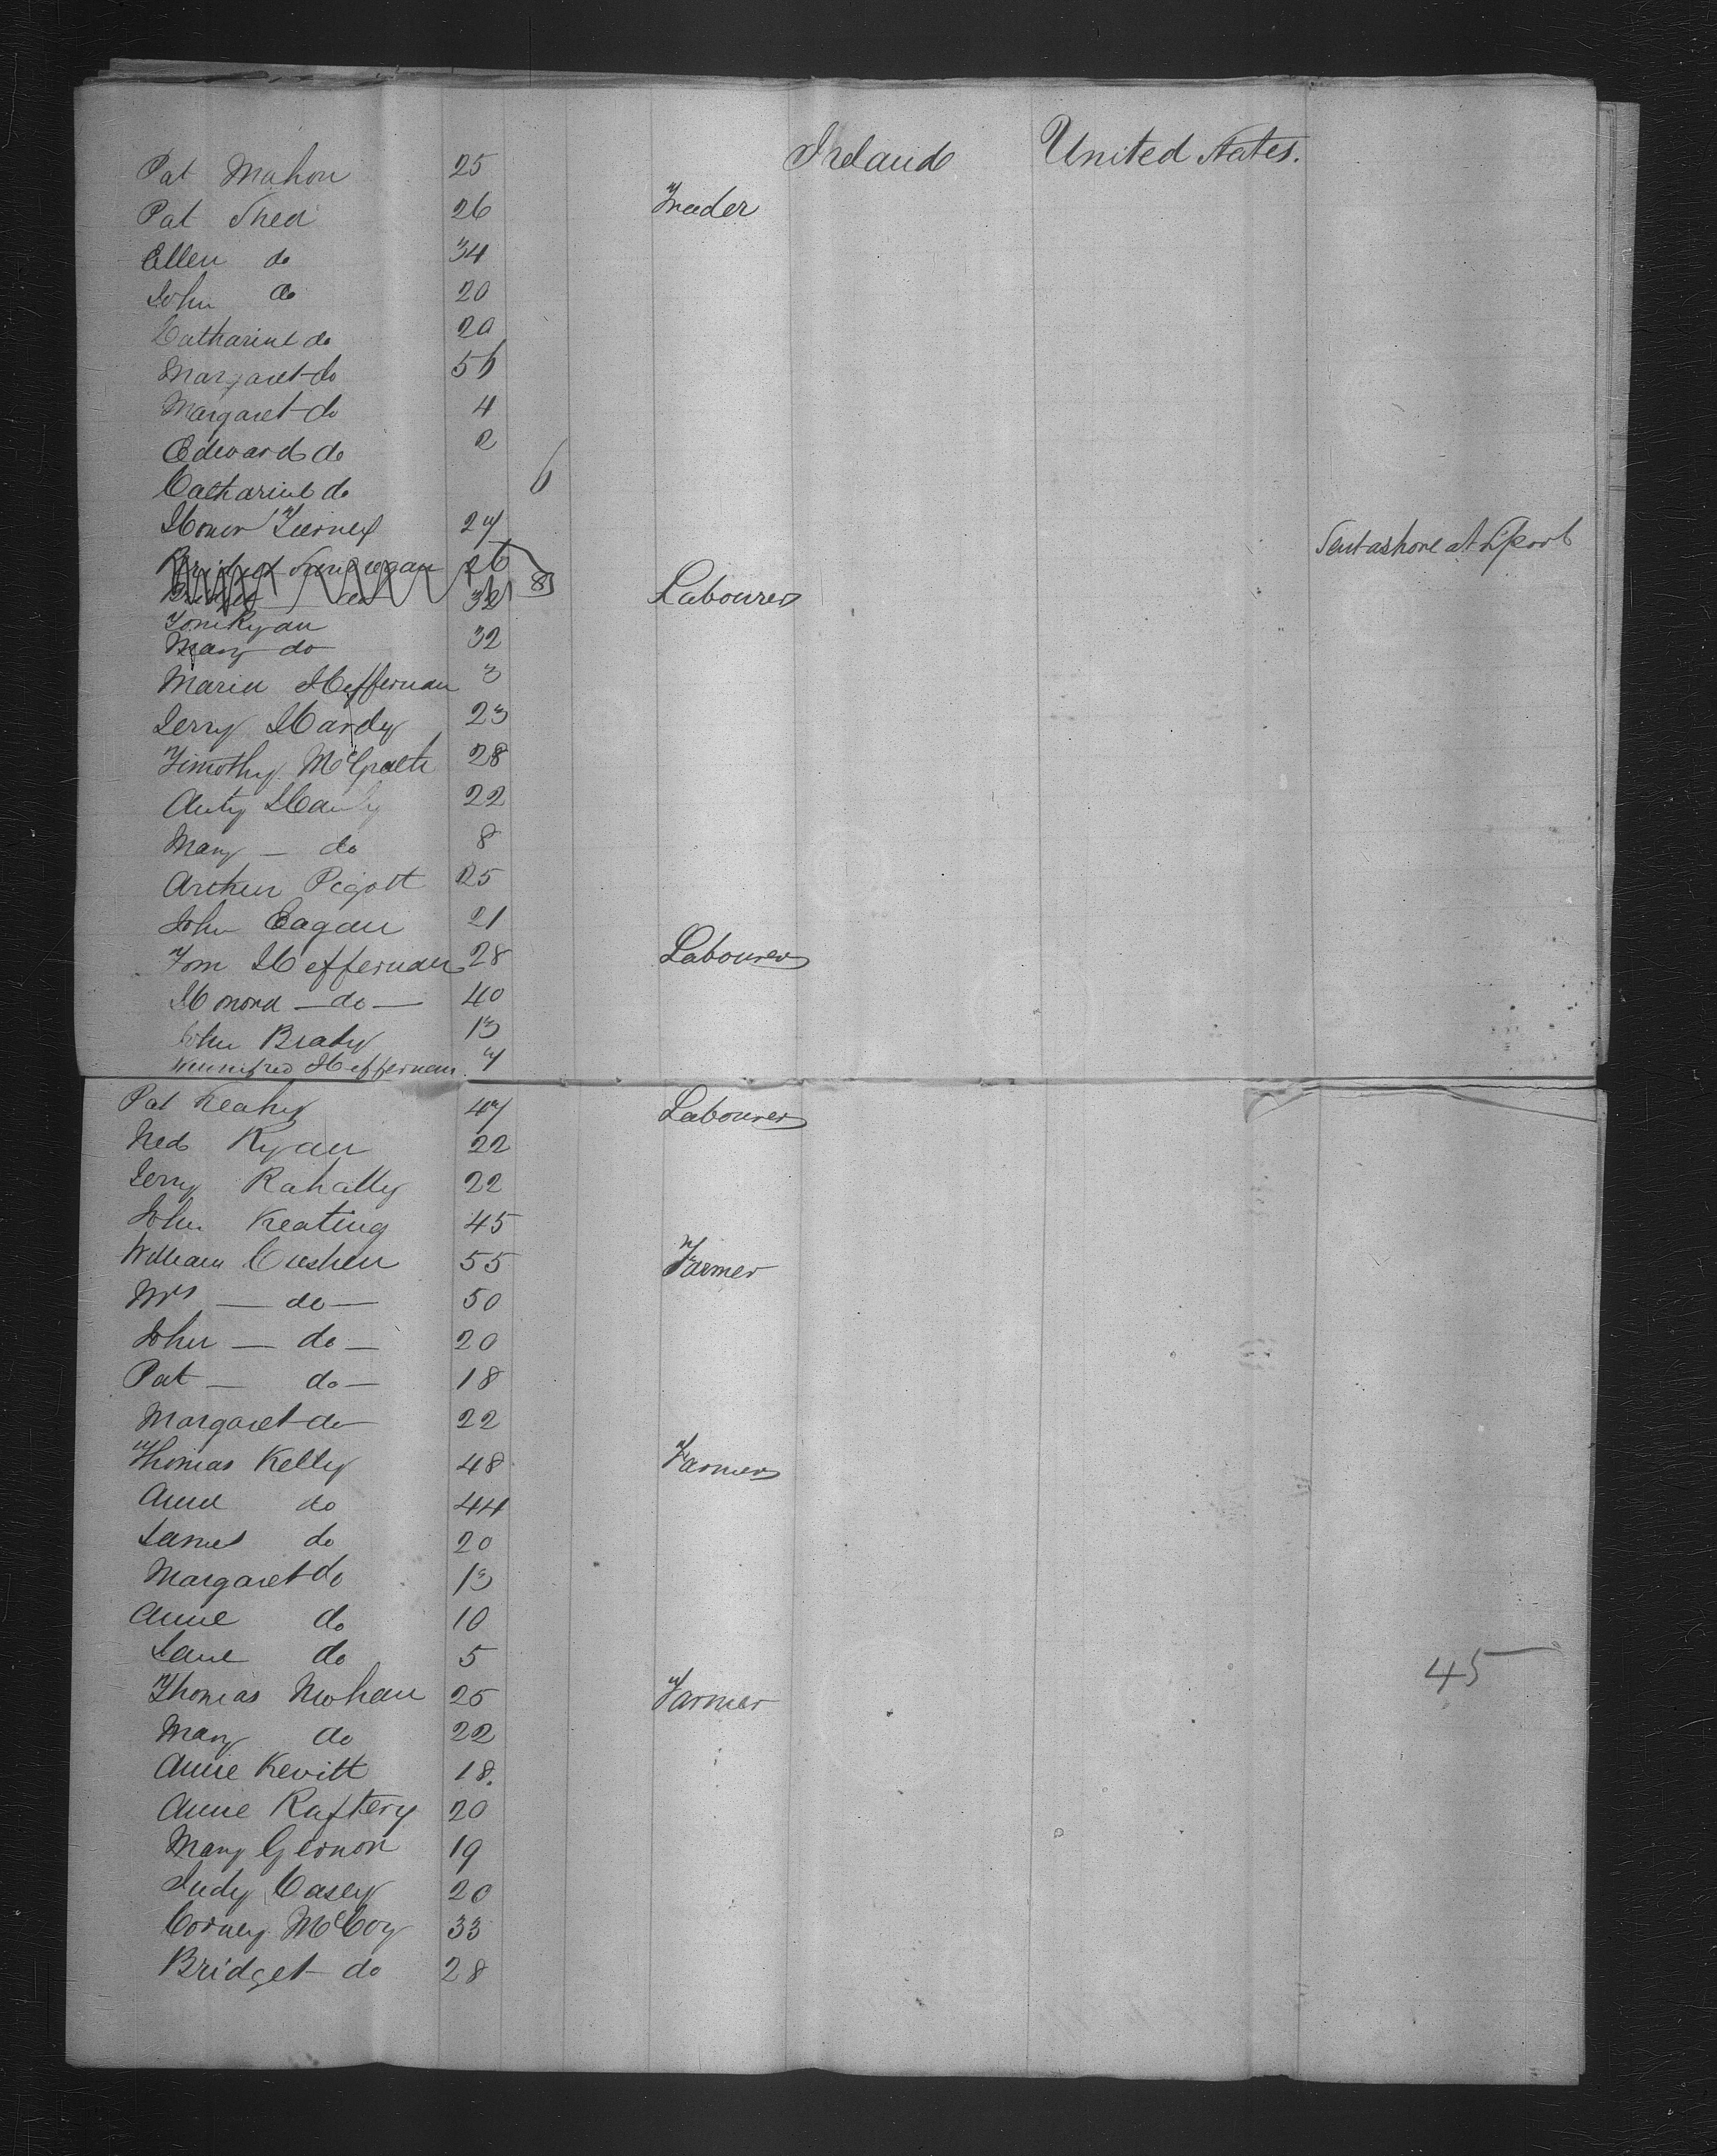 Ireland United States.
Pat Mahon 25
Pat Shea 26 Trader
Ellen do 34
John do 20
Catharine do 20
Margaret do 56
Margaret do 4
Edward do 2
Catharine do 6
Honor Tierney 27
Bridget 26 Sent ashore at L'pool
do 32 8 Labourer
Tom Ryan
Mary do 32
Maria Heffernan 3
Jerry Hardy 23
Timothy McGrath 28
Anty Hardy 22
Mary — do 8
Arthur Pigott 25
John Eagan 21
Tom Heffernan 28 Labourer
Honora — do — 40
John Brady 13
Winnifred Heffernan 7
Pat Leahy 47 Labourer
Ned Ryan 22
Jerry Rahally 22
John Keating 45
William Cushen 55 Farmer
Mrs — do — 50
John — do — 20
Pat — do — 18
Margaret do 22
Thomas Kelly 48 Farmer
Anne do 44
James do 20
Margaret do 13
Anne do 10
Jane do 5
45
Thomas Mohan 25 Farmer
Mary do 22
Anne Kevitt 18.
Anne Raftery 20
Mary Gernon 19
Judy Casey 20
Corney McCoy 33
Bridget do 28